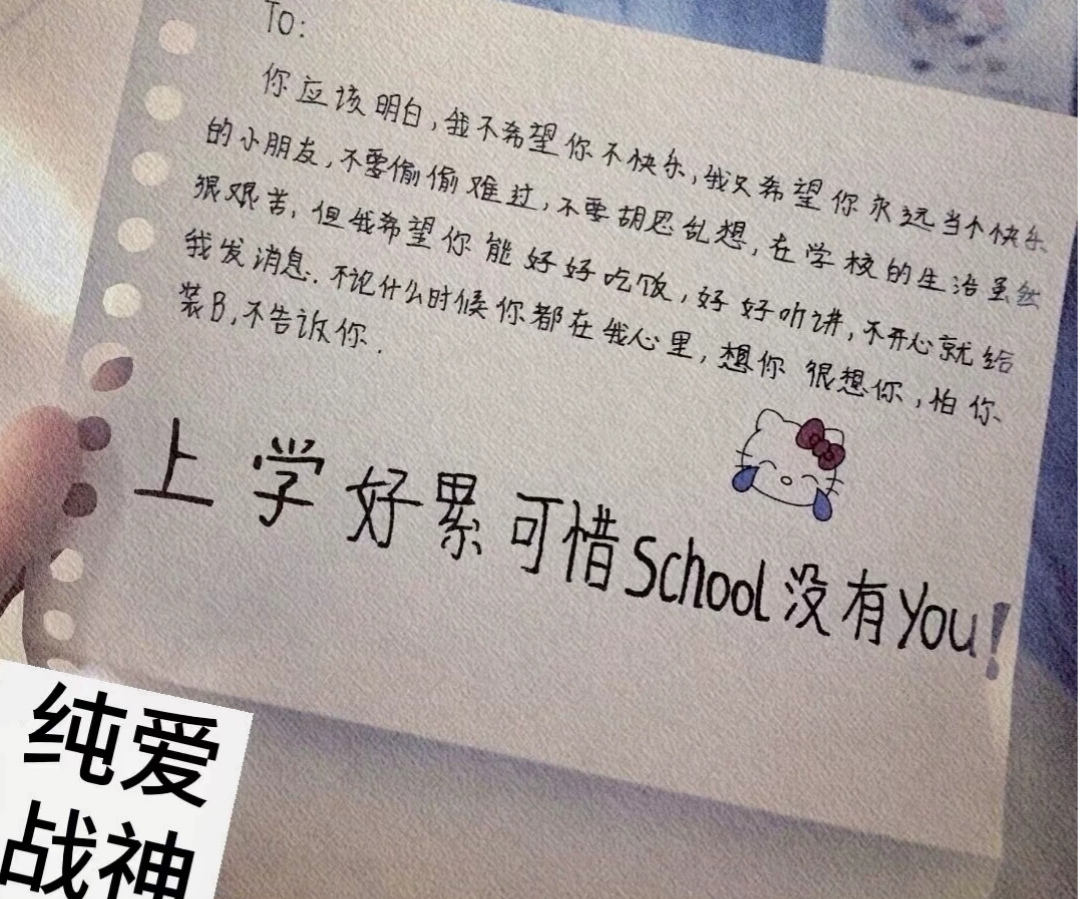 To:
你应该明白,我不希望你不快乐,我只希望你永远当个快乐
的小朋友,不要偷偷难过,不要胡思乱想,在学校的生活虽然
很艰苦,但我希望你能好好吃饭,好好听讲,不开心就给
我发消息.不论什么时候你都在我心里,想你 很想你,怕你
装B,不告诉你.
上学好累可惜School没有You!
纯爱
战神